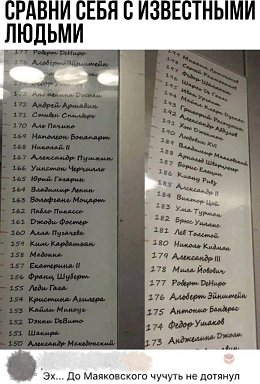 СРАВНИ СЕБЯ С ИЗВЕСТНЫМИ
ЛЮДЬМИ
177 Роберт ДеНиро
176 Альберт Эйнштейн
173 Анджелина Джоли
172 Андрей Аршавин
171 Стивен Спилберг
170 Аль Пачино
169 Наполеон Бонапарт
168 Николай II
167 Александр Пушкин
166 Уинстон Черчилль
165 Юрий Гагарин
164 Владимир Ленин
163 Вольфганг Моцарт
162 Пабло Пикассо
161 Джоди Фостер
160 Алла Пугачева
159 Ким Кардашьян
158 Мадонна
157 Екатерина II
156 Франц Шуберт
155 Леди Гага
154 Кристина Агилера
153 Кайли Миноуг
152 Дэнни ДеВито
151 Шакира
150 Александр Македонский
192 Александр
190 Людовик XVI
188 Владимир Маяковский
187 Арнольд Шварценеггер
186 Киану Ривз
185 Александр II
184 Виктор Цой
183 Ума Турман
182 Брюс Уиллис
181 Лев Толстой
180 Николь Кидман
179 Александр III
178 Мила Йовович
177 Роберт ДеНиро
176 Альберт Эйнштейн
175 Антонио Бандерас
174 Федор Ушаков
173 Анджелина Джоли
Эх... До Маяковского чучуть не дотянул